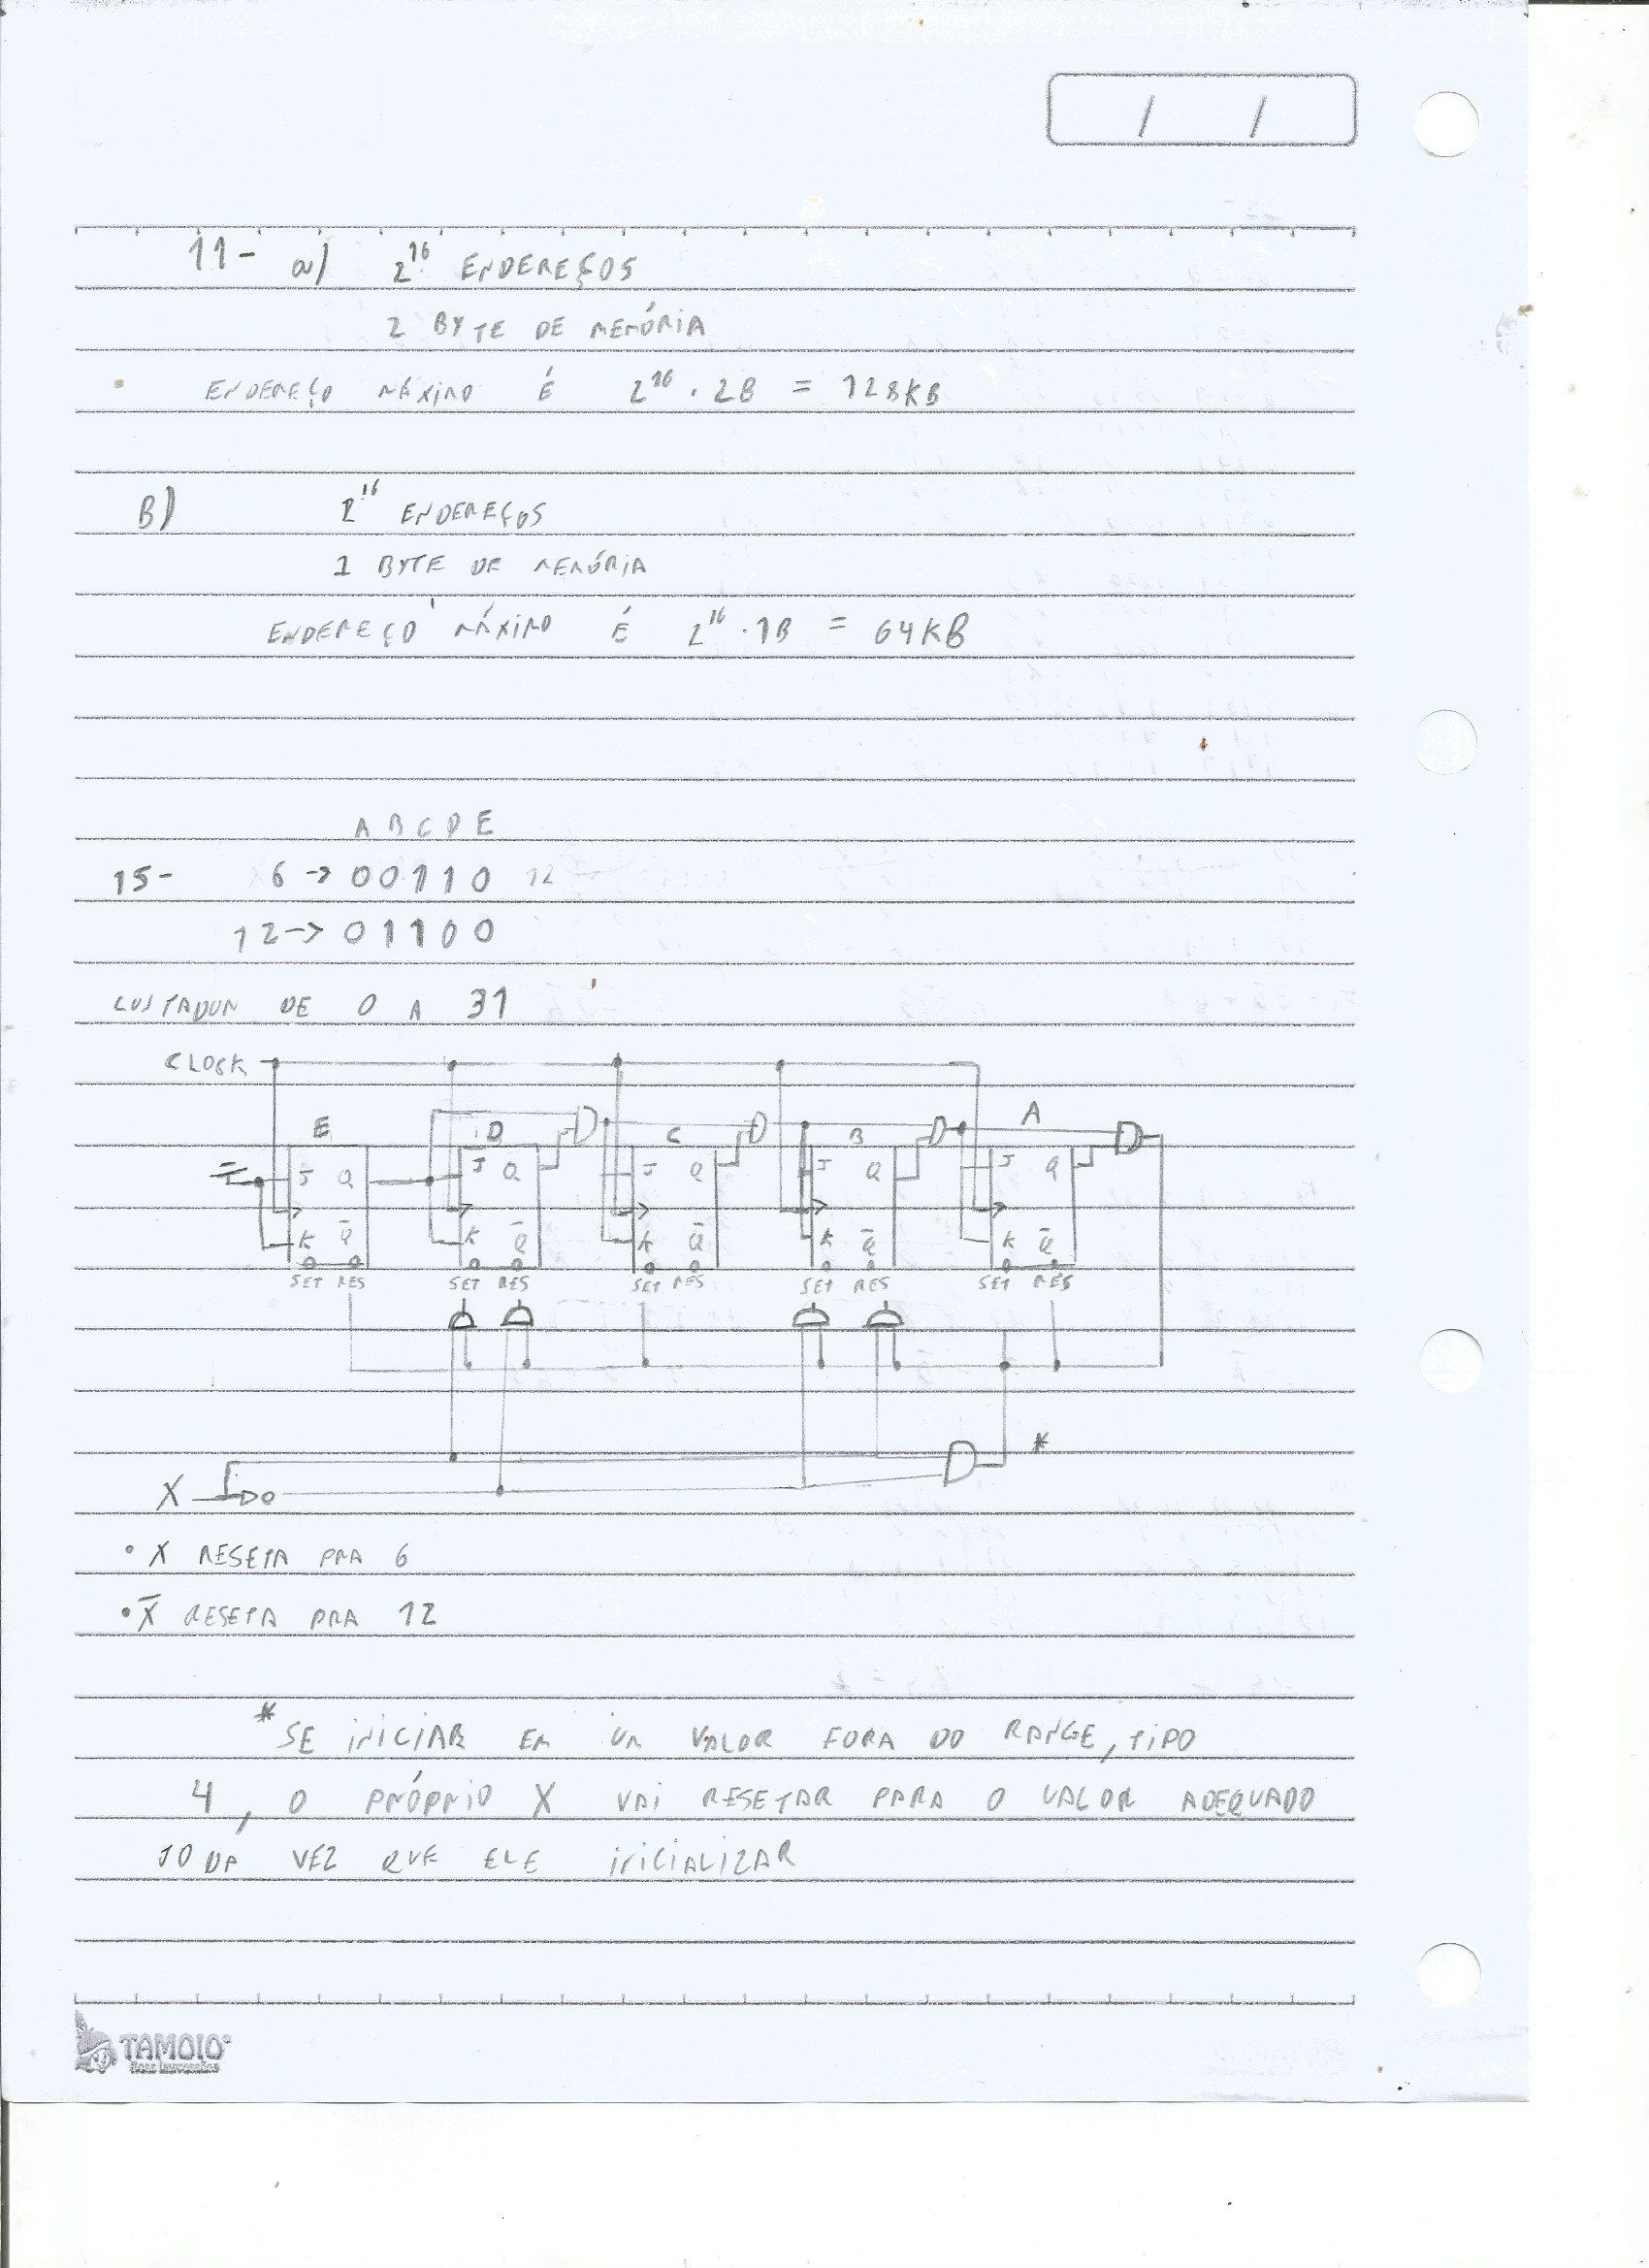 / /
11- a) 2^16 ENDEREÇOS
2 BYTE DE MEMÓRIA
ENDEREÇO MÁXIMO É 2^16 . 2B = 128KB
B) 2^16 ENDEREÇOS
1 BYTE DE MEMÓRIA
ENDEREÇO MÁXIMO É 2^16 . 1B = 64KB
A B C D E
15- 6 → 00110 12
12 → 01100
CONTADOR DE 0 A 31
CLOCK
E D C B A
J Q J Q J Q J Q J Q
K Q̅ K Q̅ K Q̅ K Q̅ K Q̅
SET RES SET RES SET RES SET RES SET RES
*
X
• X RESETA PRA 6
• X̅ RESETA PRA 12
* SE INICIAR EM UM VALOR FORA DO RANGE, TIPO
4, O PRÓPRIO X VAI RESETAR PARA O VALOR ADEQUADO
TODA VEZ QUE ELE INICIALIZAR
TAMOIO®
Boas Impressões